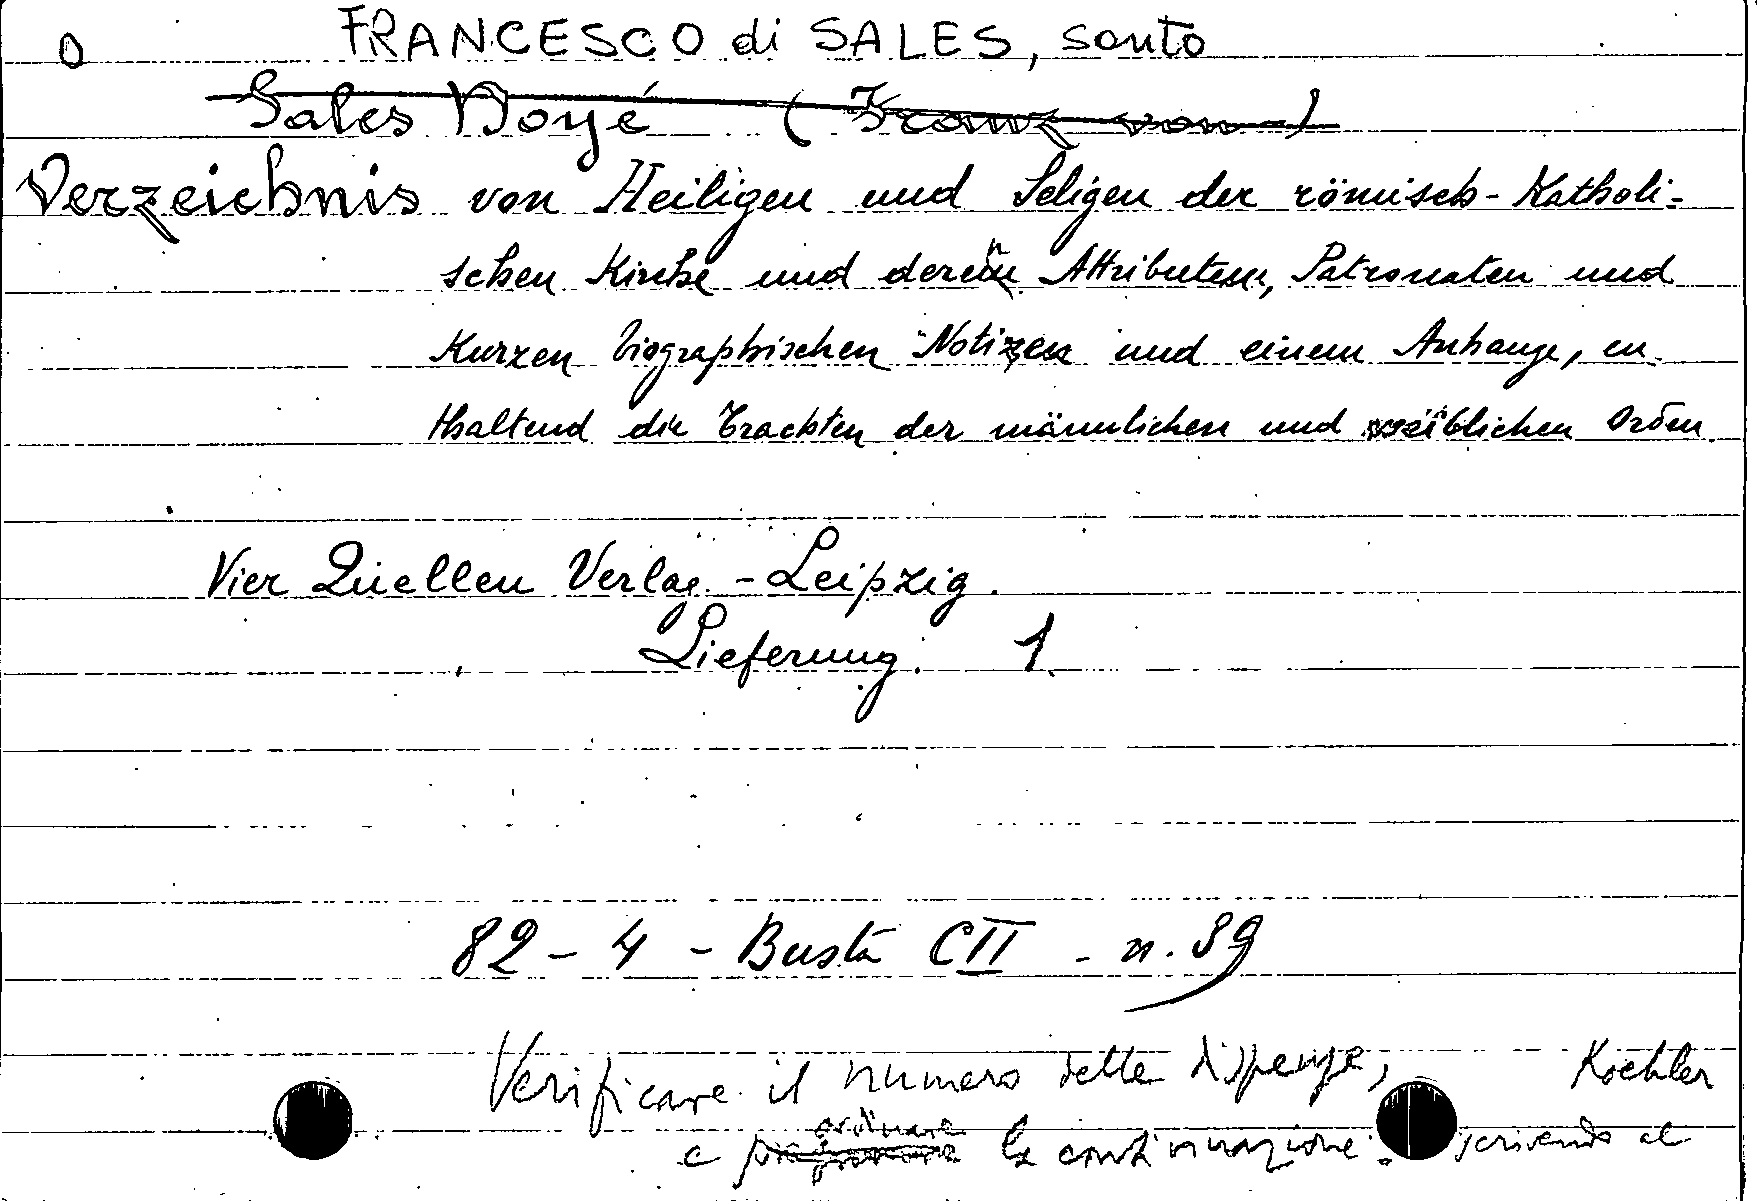 O FRANCESCO di SALES, santo
Sales Doyé (Franz von)
Verzeichnis von Heiligen und Seligen der römisch-Katholi-
schen Kirche und deren Attributen, Patronaten und
Kurzen biographischen Notizen und einem Anhange, en
thaltend die Trachten der männlichen und weiblichen Orden
Vier Quellen Verlag - Leipzig.
Lieferung. 1
82 - 4 - Busta CII - n. 39
Verificare il numero delle dispense, Koehler
ordinare
e la continuazione scrivendo al